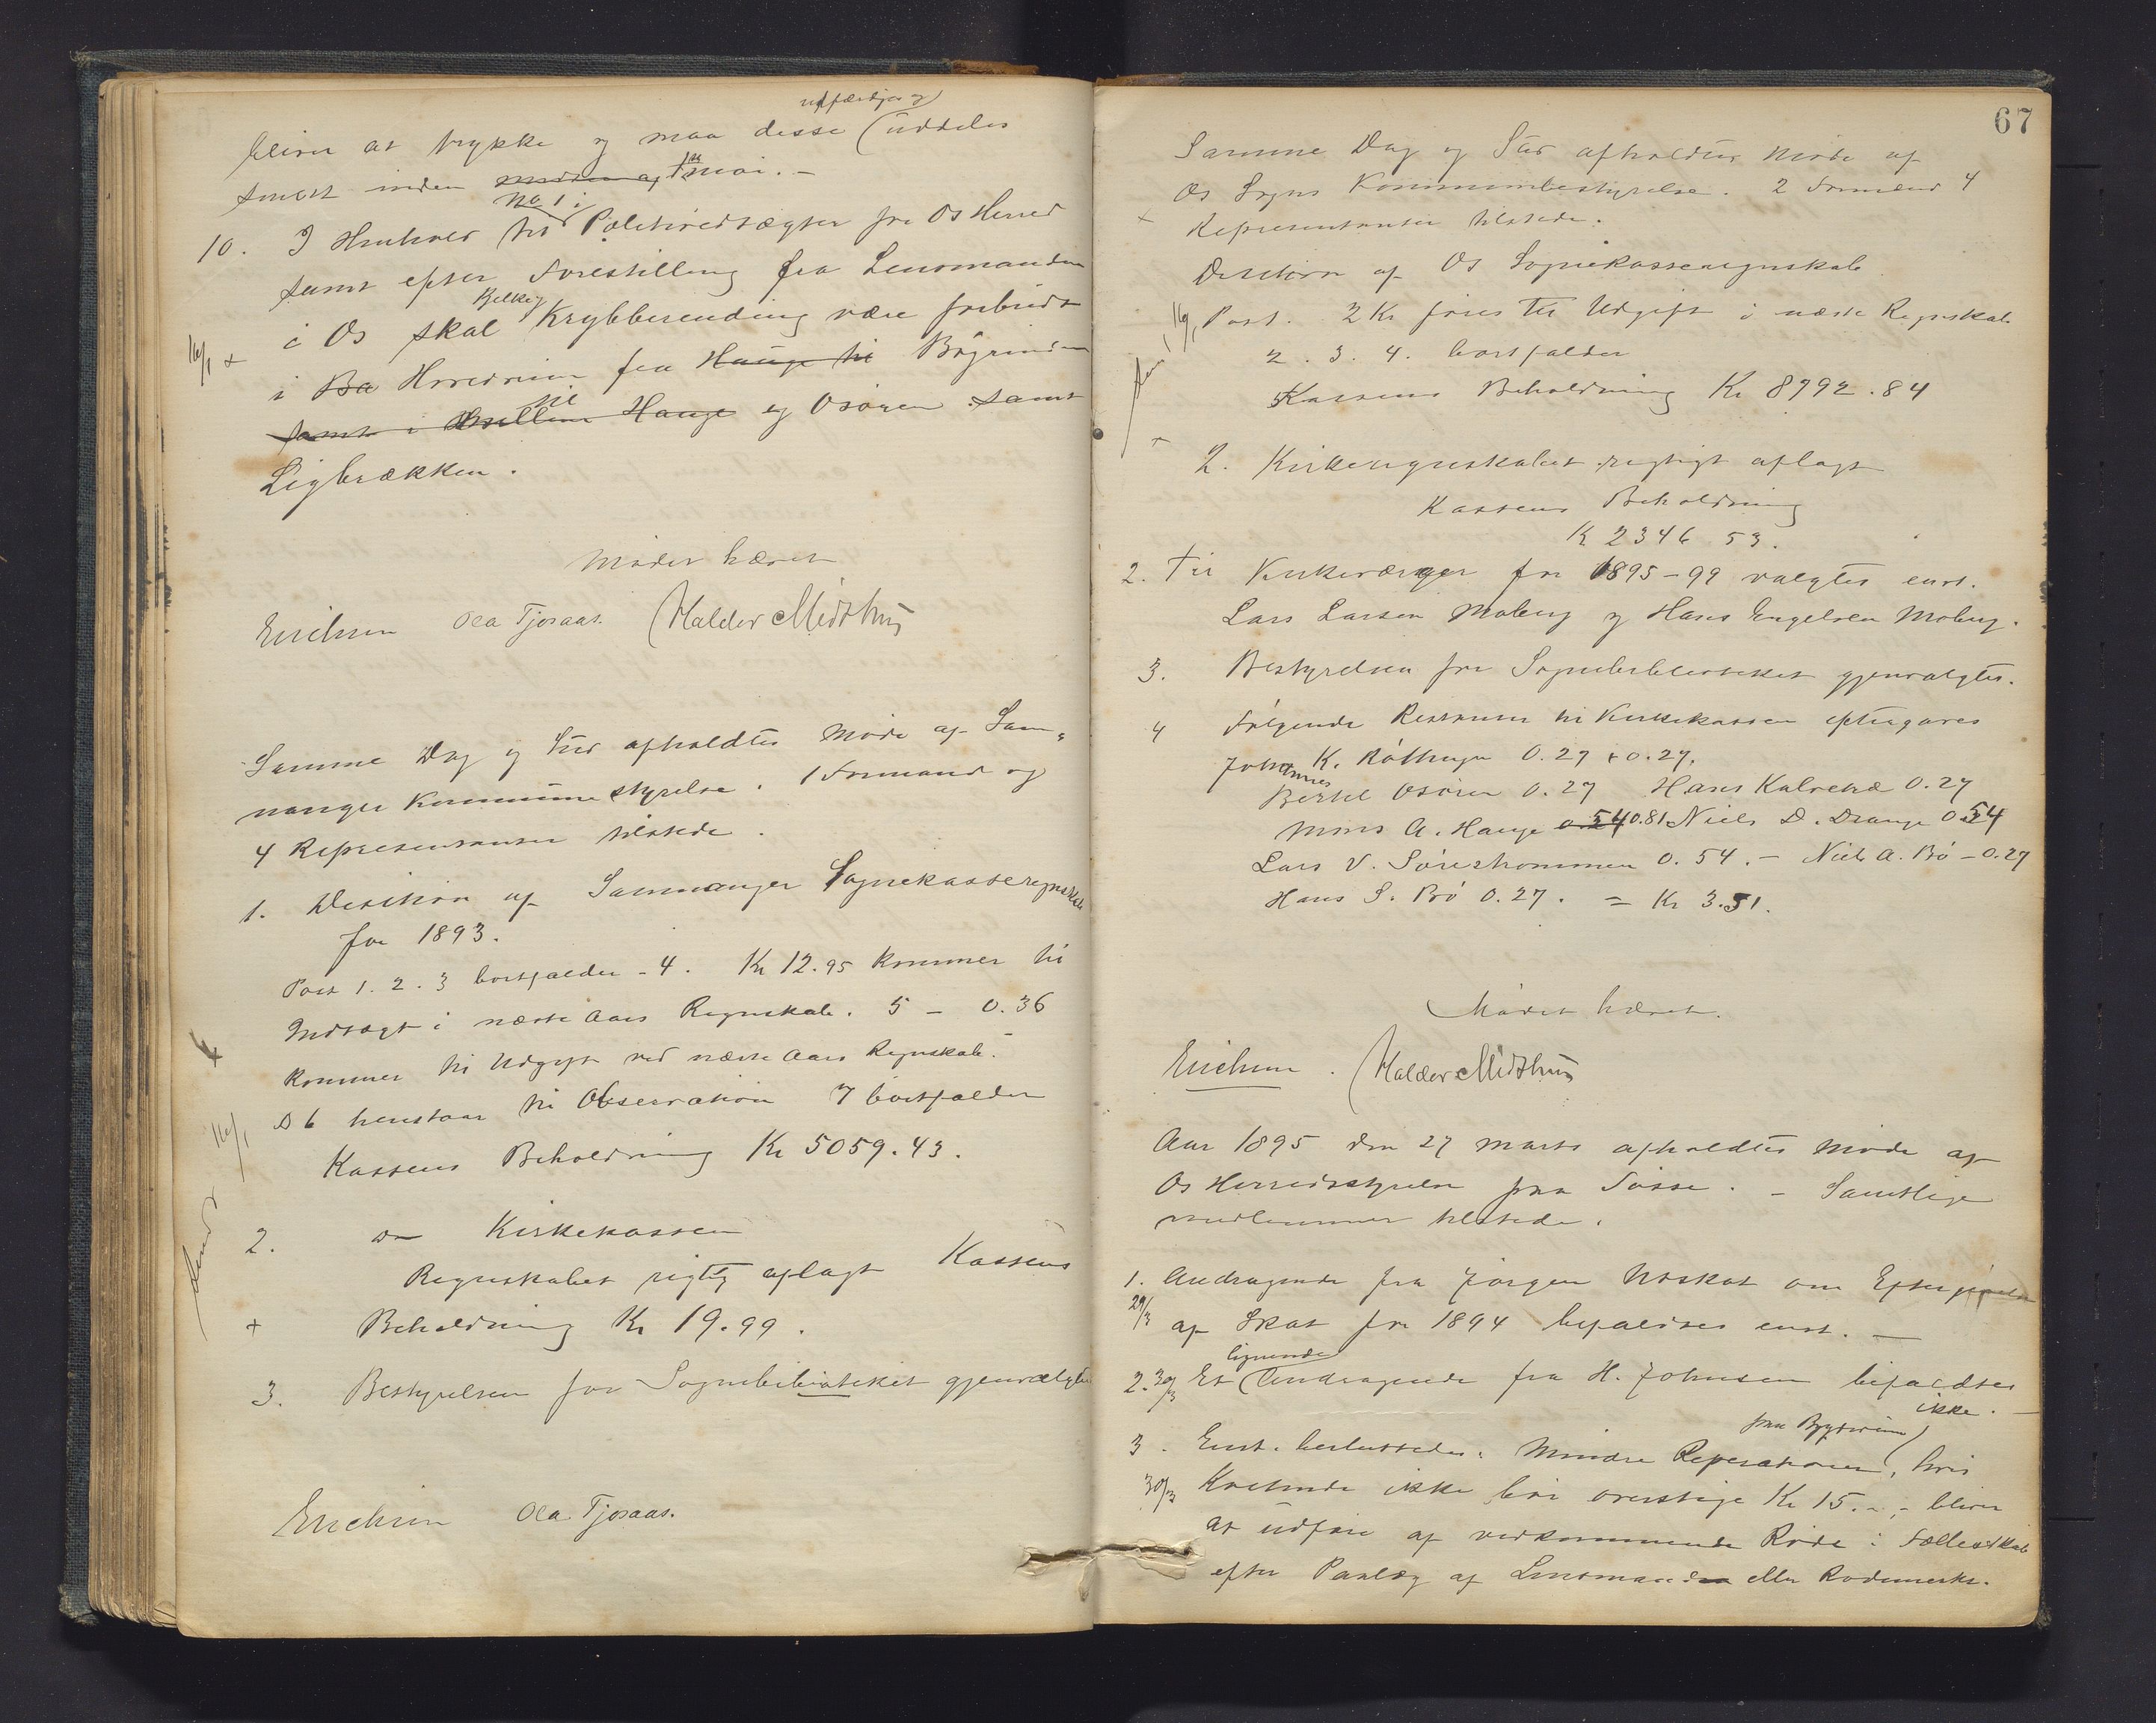 udfærdiges og
bliver at trykke og maa disse uddeles
snarest inden midten af 1ste mai. –
No 1 i
10. I Henhold til Politivedtægter for Os Herred
samt efter Forestilling fra Lensmanden
i Os skal Krybberending være forbudt
16/1 + i Ba Hovedveien fra Hauge til Bøgrinden
til
samt i Mellem Hauge og Osøren samt
Ligbrækken.
Mødet hævet
Erichsen Ola Tjosaas. Haldor Midthus
Samme Dag og Sted afholdtes Møde af Sam-
nanger Kommunestyrelse. 1 Formand og
4 Repræsentanter tilstede.
1. Decision af Samnanger Sognekasseregnskab
for 1893.
Post 1. 2. 3 bortfalder – 4. Kr 12.95 kommer til
Indtægt i næste Aars Regnskab. 5 – 0.36
kommer til Udgift ved næste Aars Regnskab.
6 henstaar til Observation 7 bortfalder
Kassens Beholdning Kr 5059.43.
2. Kirkekassen
Regnskabet rigtig aflagt Kassens
+ Beholdning Kr 19.99.
3. Bestyrelsen for Sognebibliotheket gjenvalgtes
Erichsen Ola Tjosaas.
67
Samme Dag og Sted afholdtes Møde af
Os Sogns Kommunebestyrelse. 2 Formænd 4
Repræsentanter tilstede.
Decision af Os Sognekasseregnskab
16/1 Post 1. 2 Kr føres til Udgift i næste Regnskab
2. 3. 4. bortfalder
Kassens Beholdning Kr 8792.84
2. Kirkeregnskabet rigtigt aflagt
Kassens Beholdning
Kr 2346 53.
2. Til Kirkeværger for 1895–99 valgtes enst.
Lars Larsen Moberg og Hans Engelsen Moberg.
3. Bestyrelsen for Sognebibliotheket gjenvalgtes.
4 Følgende Restancer til Kirkekassen eftergaves
Johannes K. Røttingen 0.27 + 0.27.
Bertel Osøren 0.27 Hans Kalvetræ 0.27
Mons A. Hauge 0.54 0.81 Niels D. Drange 0.54
Lars V. Sørestrommen 0.54. – Niels A. Bø – 0.27
Hans S. Bø 0.27. = Kr 3.51.
Mødet hævet.
Erichsen. Haldor Midthus
Aar 1895 den 27 Marts afholdtes Møde af
Os Herredsstyrelse paa Tøsse. – Samtlige
medlemmer tilstede.
1. Andragende fra Jørgen Uskot om Eftergivelse
29/3 af Skat for 1894 bifaldtes enst. –
lignende
2. 30/3 Et Andragende fra H. Johnsen bifaldtes
ikke. –
paa Bygdeveiene
3. Enst. besluttedes: Mindre Reperationer, hvis
30/3 Kostende ikke bør overstige Kr 15.–, bliver
at udføre af vedkommende Rode i Fællesskab
efter Paalæg af Lensmanden eller Rodemester.